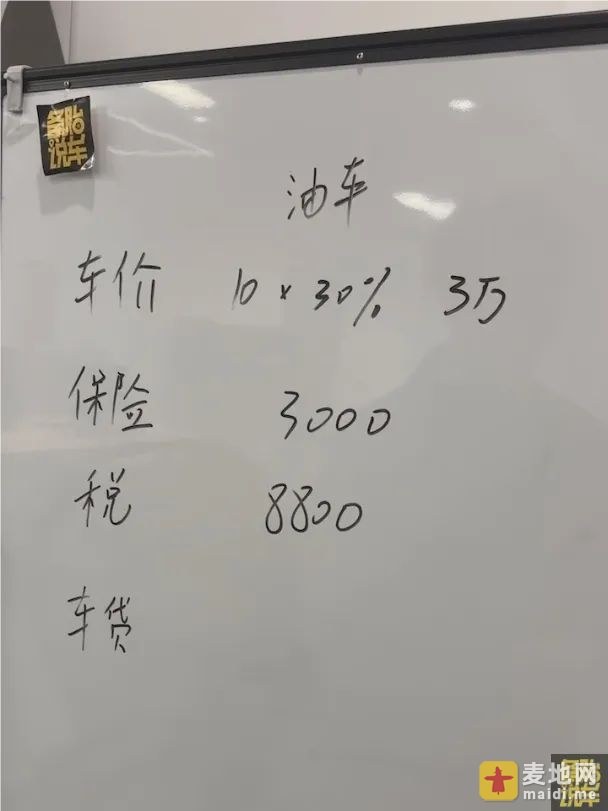 备胎
说车
油车
车价 10 × 30% 3万
保险 3000
税 8800
车贷
麦地网
maidi.me
备胎
说车